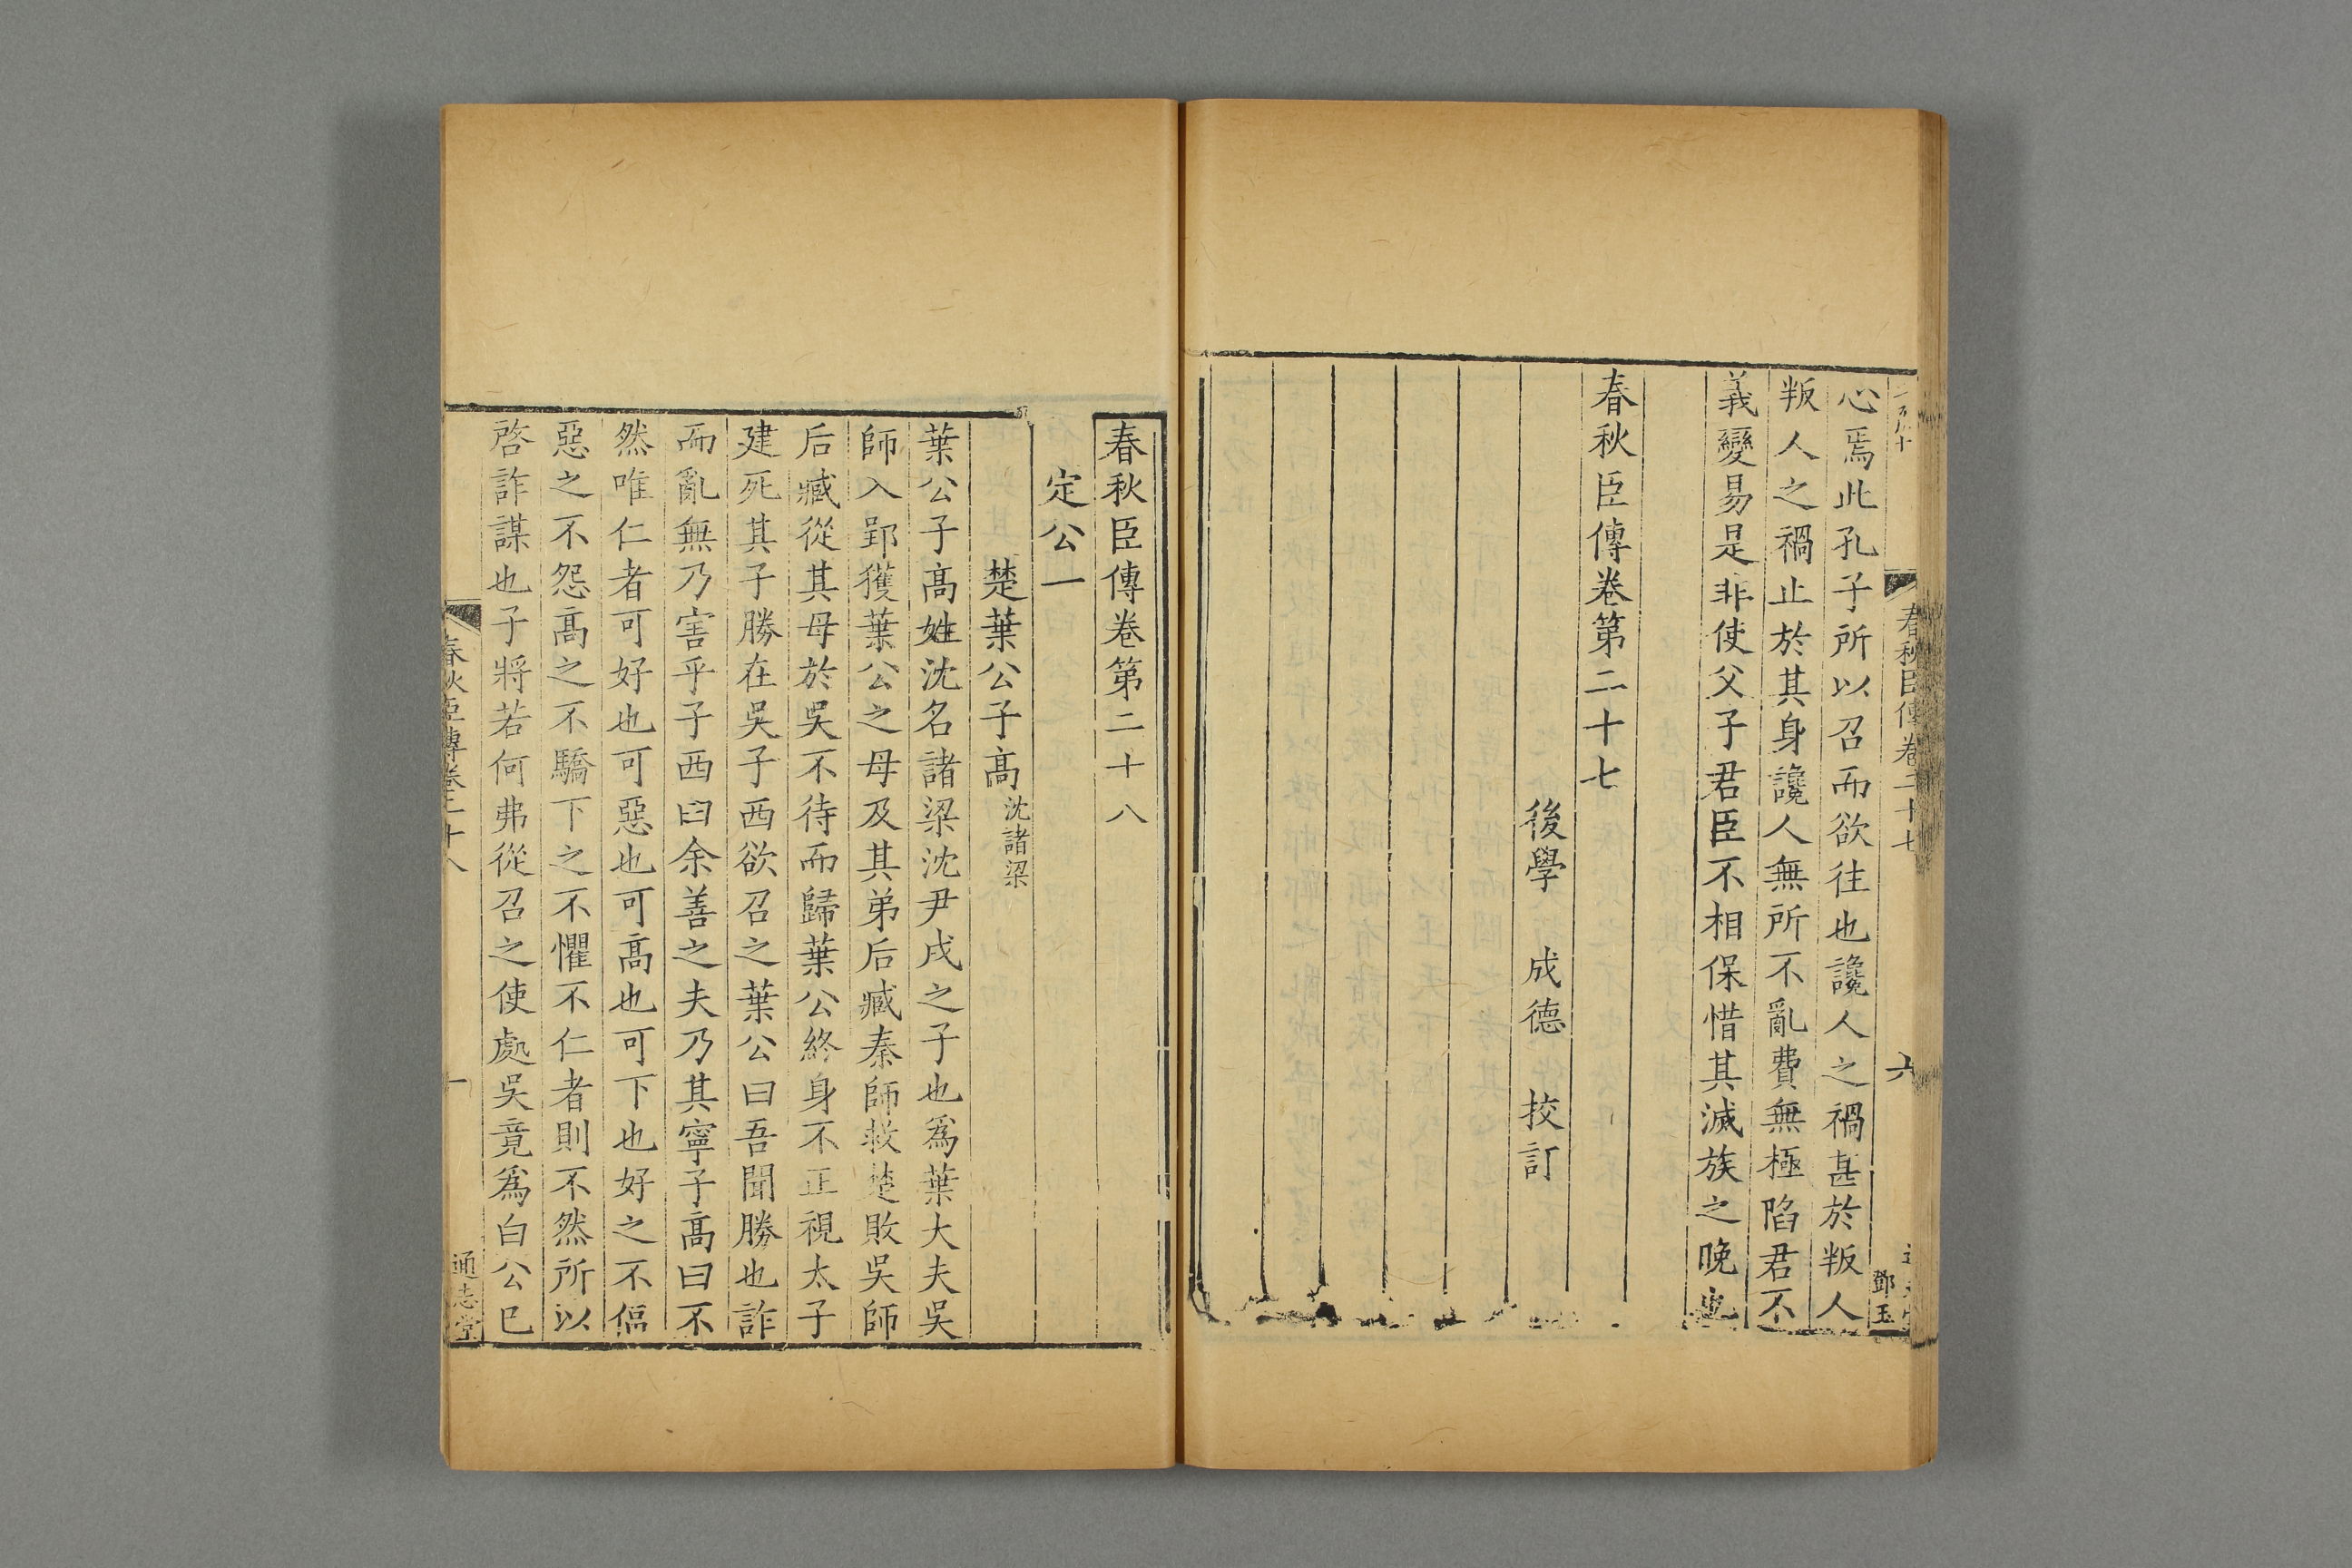 春秋臣傳卷二十七
六
鄧玉
心焉此孔子所以召而欲往也讒人之禍甚於叛人
叛人之禍止於其身讒人無所不亂費無極陷君不
義變易是非使父子君臣不相保惜其滅族之晚也
春秋臣傳卷第二十七
後學 成德 挍訂
春秋臣傳卷第二十八
定公一
楚葉公子高沈諸梁
葉公子高姓沈名諸梁沈尹戌之子也爲葉大夫吳
師入郢獲葉公之母及其弟后臧秦師救楚敗吳師
后臧從其母於吳不待而歸葉公終身不正視太子
建死其子勝在吳子西欲召之葉公曰吾聞勝也詐
而亂無乃害乎子西曰余善之夫乃其寧子高曰不
然唯仁者可好也可惡也可高也可下也好之不偪
惡之不怨高之不驕下之不懼不仁者則不然所以
啓詐謀也子將若何弗從召之使處吳竟爲白公已
春秋臣傳卷二十八
一
通志堂